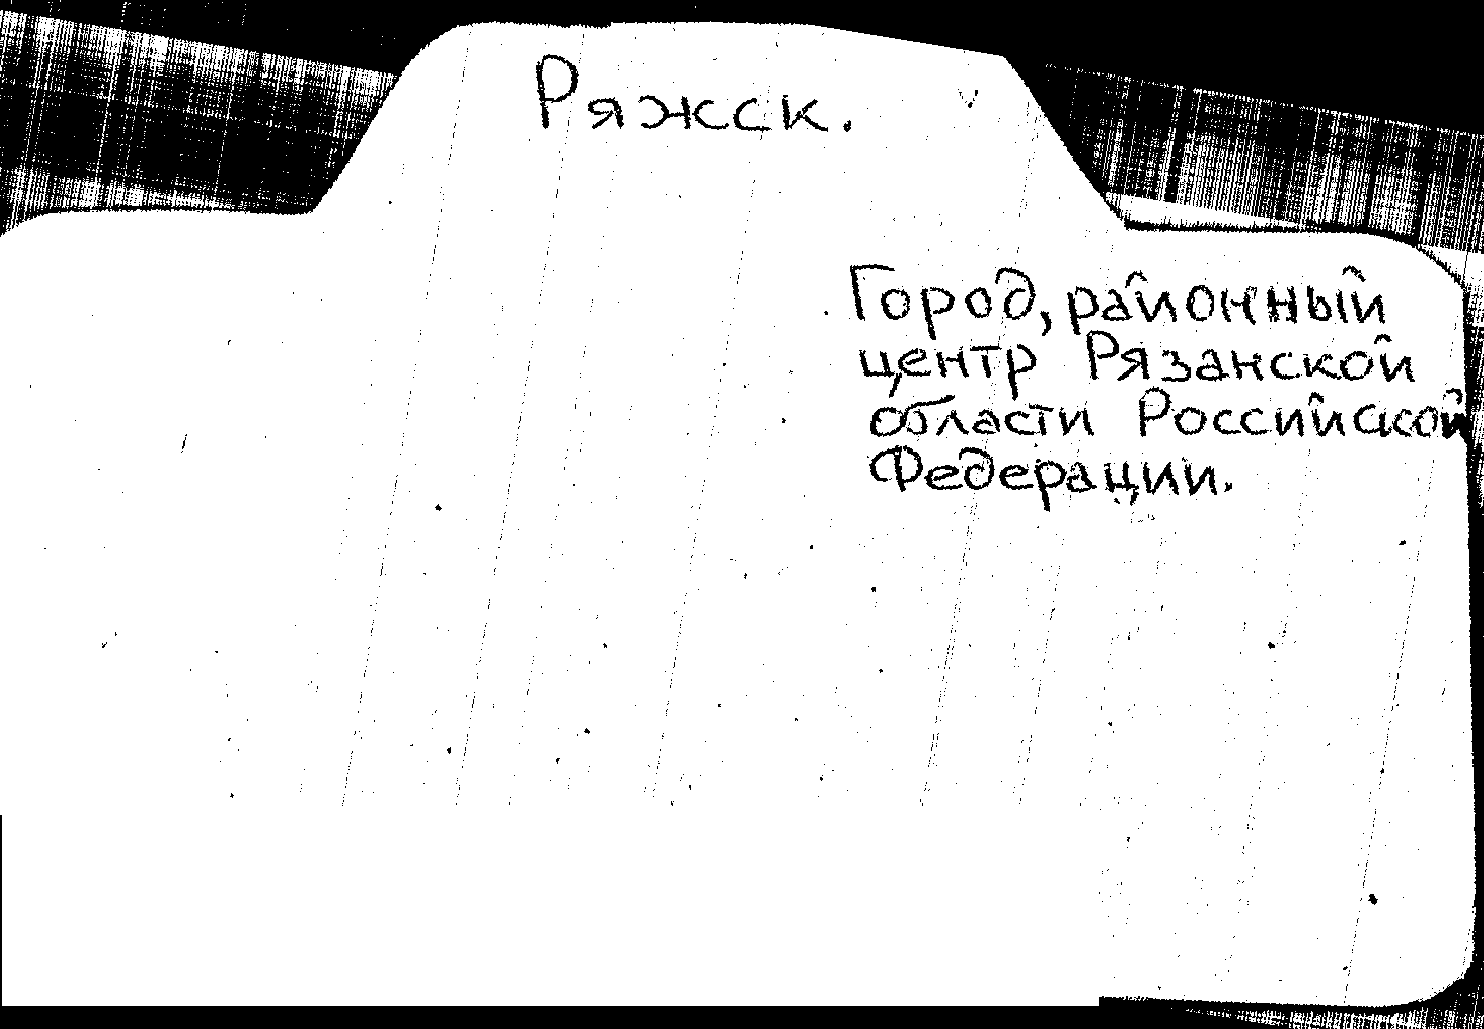 Ряжск.
Город, районный
центр Рязанской
области Российской
Федерации.